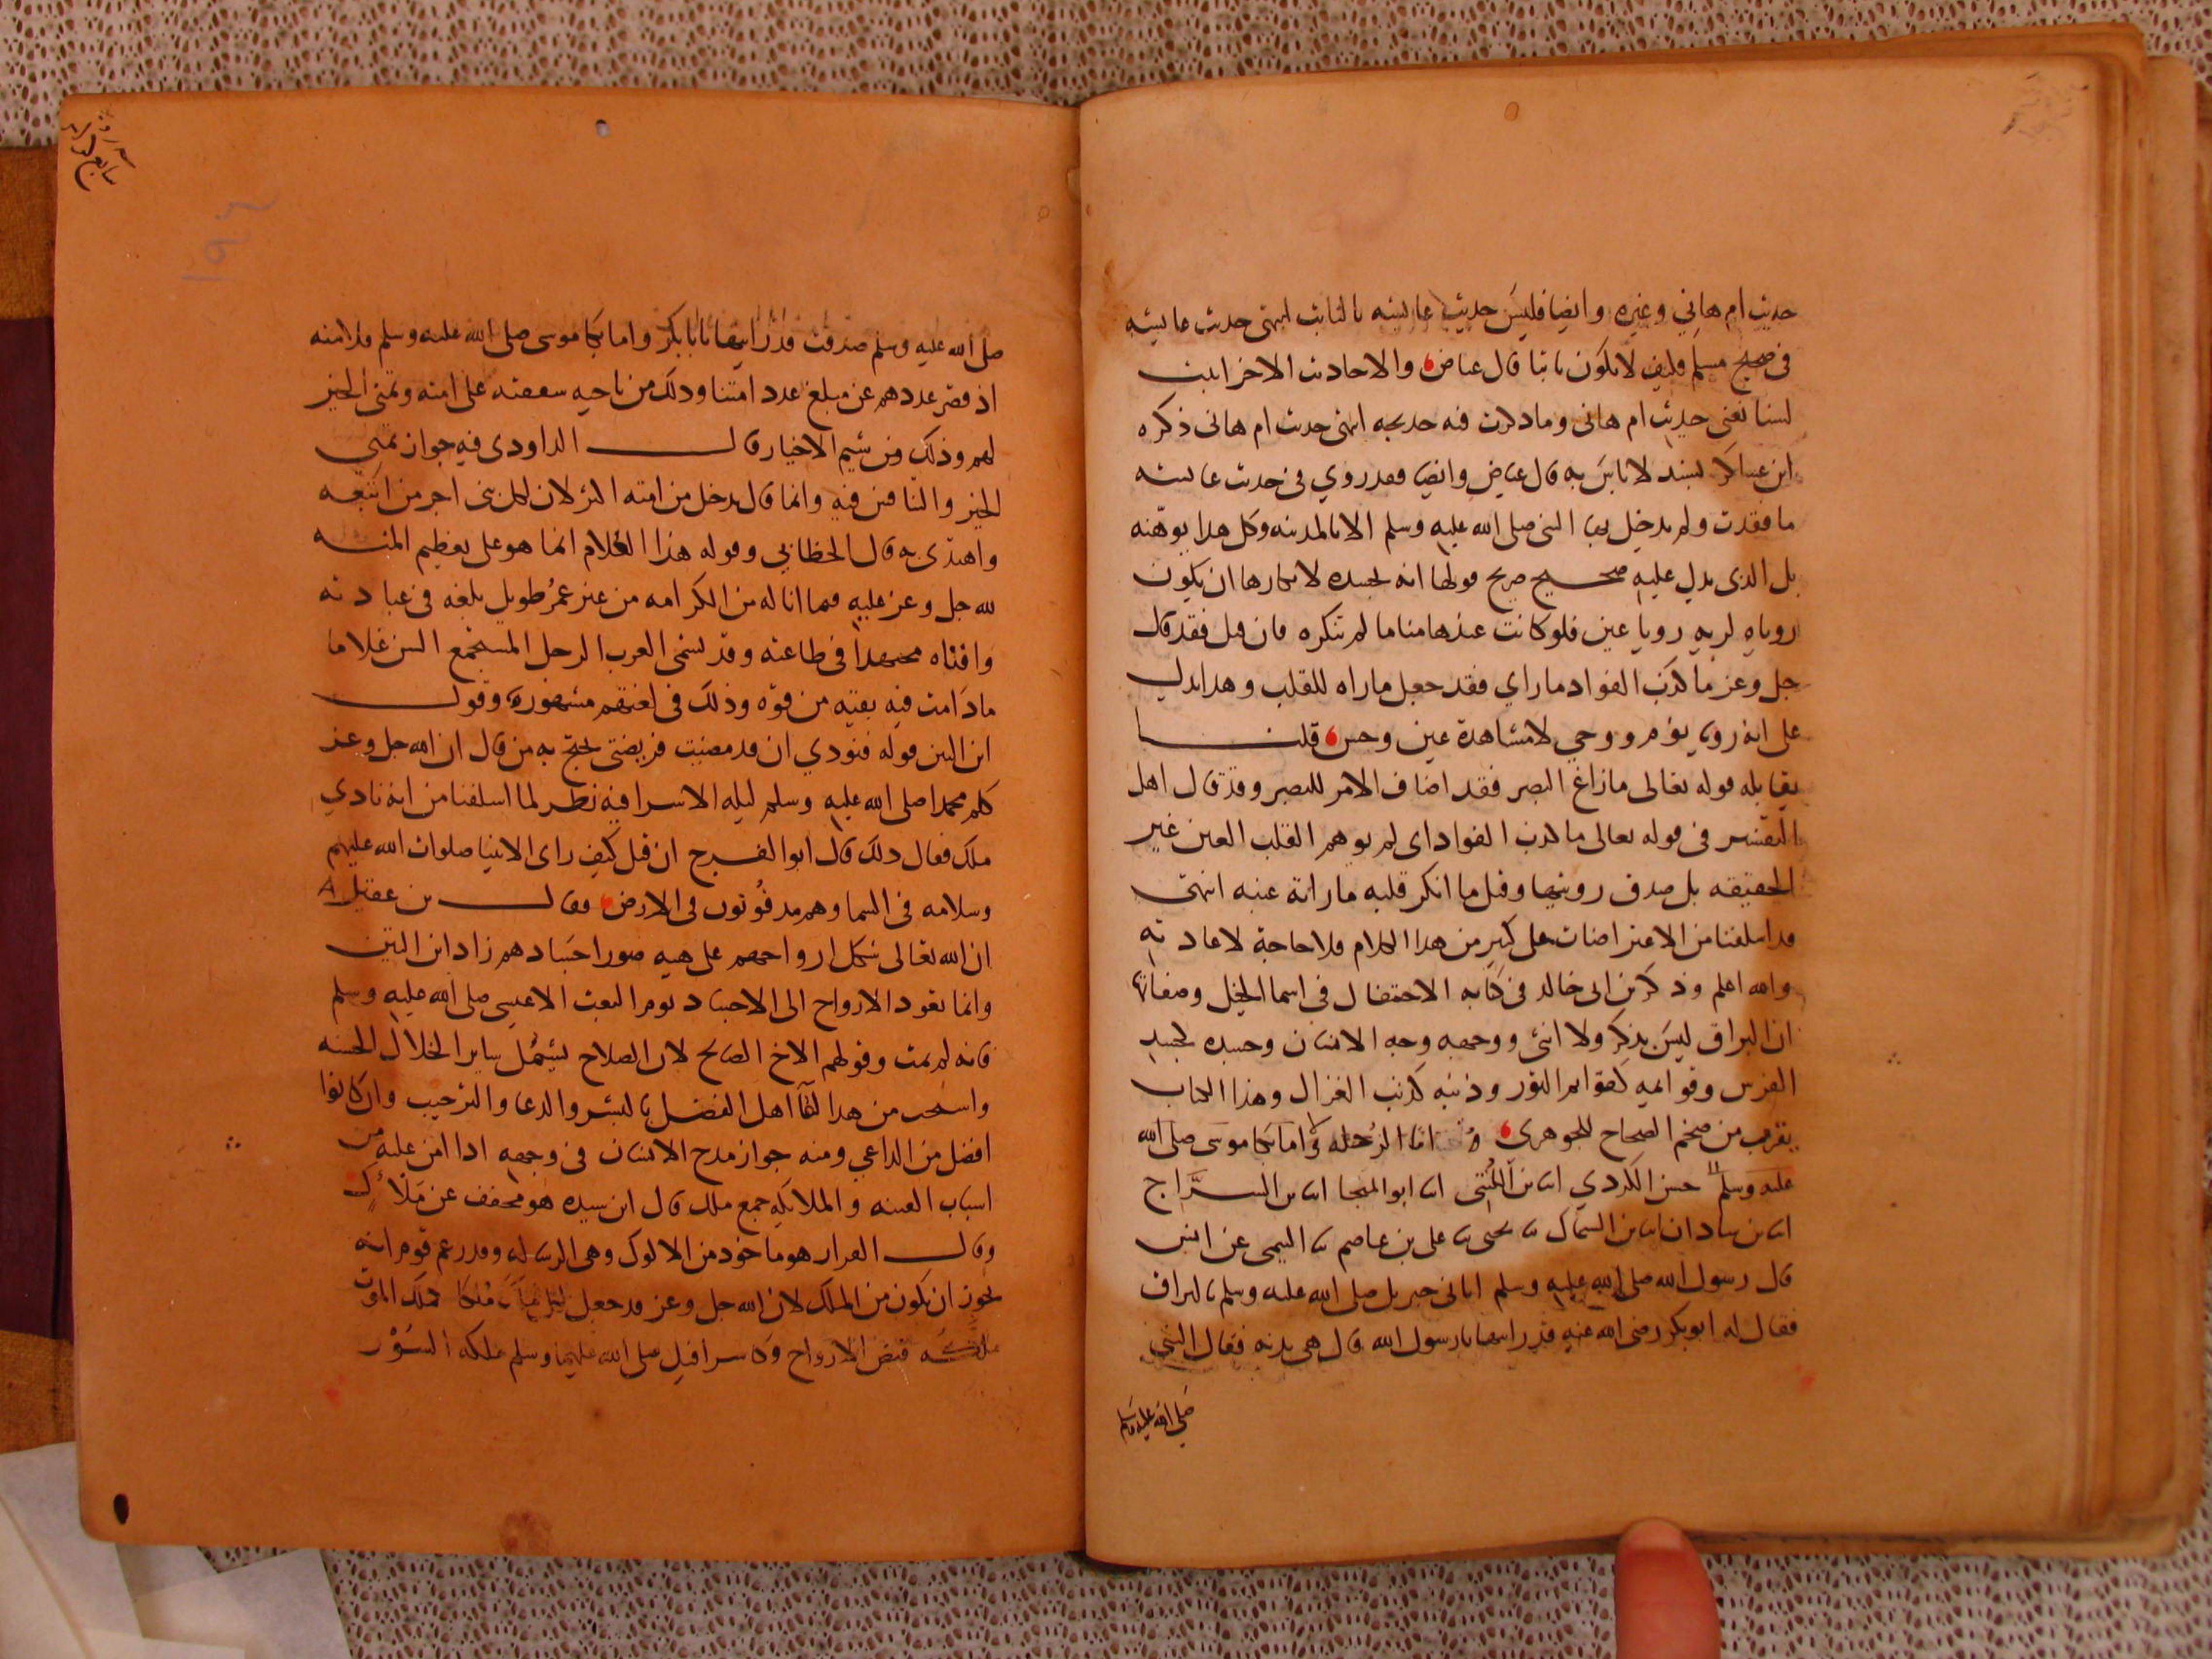 حديث ام هاني وغيره وايضا فليس حديث عايشه بالثابت انتهى حديث عايشه
في صحيح مسلم فكيف لا يكون ثابتا قال عياض والاحاديث الاخر اثبت
لسنا نعني حديث ام هاني وما ذكرت فيه خديجه انتهى حديث ام هاني ذكره
ابن عساكر بسند لا باس به قال عياض وايضا فقد روي في حديث عايشه
ما فقدت ولم يدخل بها النبي صلى الله عليه وسلم الا بالمدينه وكل هذا يوهنه
بل الذي يدل عليه صحيح صريح قولها انه بجسده لانكارها ان يكون
روياه لربه رويا عين فلو كانت عندها مناما لم تنكره فان قيل فقد قال
جل وعز ما كذب الفواد ما راي فقد جعل ما راه للقلب وهذا يدل
على انه رويا نوم ووحي لا مشاهدة عين وحس قلنا
يقابله قوله تعالى ما زاغ البصر فقد اضاف الامر للبصر وقد قال اهل
التفسير في قوله تعالى ما كذب الفواد اي لم يوهم القلب العين غير
الحقيقه بل صدق رويتها وقيل ما انكر قلبه ما راته عينه انتهى
قد اسلفنا من الاعتراضات على كثير من هذا الكلام فلا حاجة لاعادته
والله اعلم وذكر بن ابي خالد في كتابه الاحتفال في اسما الخيل وصفاتها
ان البراق ليس بذكر ولا انثى ووجهه وجه الانسان وجسده كجسد
الفرس وقوايمه كقوايم الثور وذنبه كذنب الغزال وهذا الكتاب
يقرب من ضخم الصحاح للجوهري انا الرحله اما بكا موسى صلى الله
عليه وسلم حسن الكردي ابنا بن المُنَتّي ابنا ابو المنجا ابنا بن السراج
ابنا بن شاذان ابنا بن السماك ثنا يحيى ثنا علي بن عاصم ثنا التيمي عن انس
قال رسول الله صلى الله عليه وسلم اتاني جبريل صلى الله عليه وسلم بالبراق
فقال له ابو بكر رضى الله عنه قد رايتها يا رسول الله قال هي بدنه فقال النبي
صلى الله عليه وسلم
صلى الله عليه وسلم صدقت قد رايتها يا ابا بكر واما بكا موسى صلى الله عليه وسلم فلامته
اذ قصر عددهم عن مبلغ عدد امتنا وذلك من ناحيه شفقته على امته وتمنى الخير
لهم وذلك من شيم الاخيار قال الداودي فيه جواز تمني
الخير والتنافس فيه وانما قال يدخل من امته اكثر لان لكل نبي اجر من اتبعه
واهتدى به قال الخطابي وقوله هذا الغلام انما هو على تعظيم المنه
لله جل وعز عليه فيما اناله من الكرامه من غير عمر طويل بلغه في عبادته
وافناه مجتهدا في طاعته وقد تسمى العرب الرجل المستجمع السن غلاما
ما دامت فيه بقيه من قوه وذلك في لغتهم مشهوره وقول
ابن التين قوله فنودي ان قد امضيت فريضتي يحتج به من قال ان الله جل وعز
كلم محمدا صلى الله عليه وسلم ليله الاسرا فيه نظر لما اسلفنا من انه نادي
ملك فقال ذلك قال ابو الفرج ان قيل كيف راى الانبيا صلوات الله عليهم
وسلامه في السما وهم مدفونون في الارض فقال بن عقيل
ان الله تعالى شكل ارواحهم على هيه صور اجسادهم زاد ابن التين
وانما تعود الارواح الى الاجساد يوم البعث الا عيسى صلى الله عليه وسلم
فانه لم يمت وقولهم الاخ الصالح لان الصلاح يشمل ساير الخلال الحسنه
واستحب من هذا لقاا اهل الفضل بالبشر والدعا والترحيب وان كانوا
افضل من الداعي ومنه جواز مدح الانسان في وجهه اذا امن عليه من
اسباب الفتنه والملايكه جمع ملك قال ابن سيده هو مخفف عن مَلأَك
وقال القزاز هو ماخوذ من الالوك وهي الرساله وقد زعم قوم انه
يجوز ان يكون من الملك لان الله جل وعز قد جعل لكل ملك مُلكا فملك الموت
ملكه قبض الارواح وكا سرافيل صلى الله عليهما وسلم ملكه السُوْر